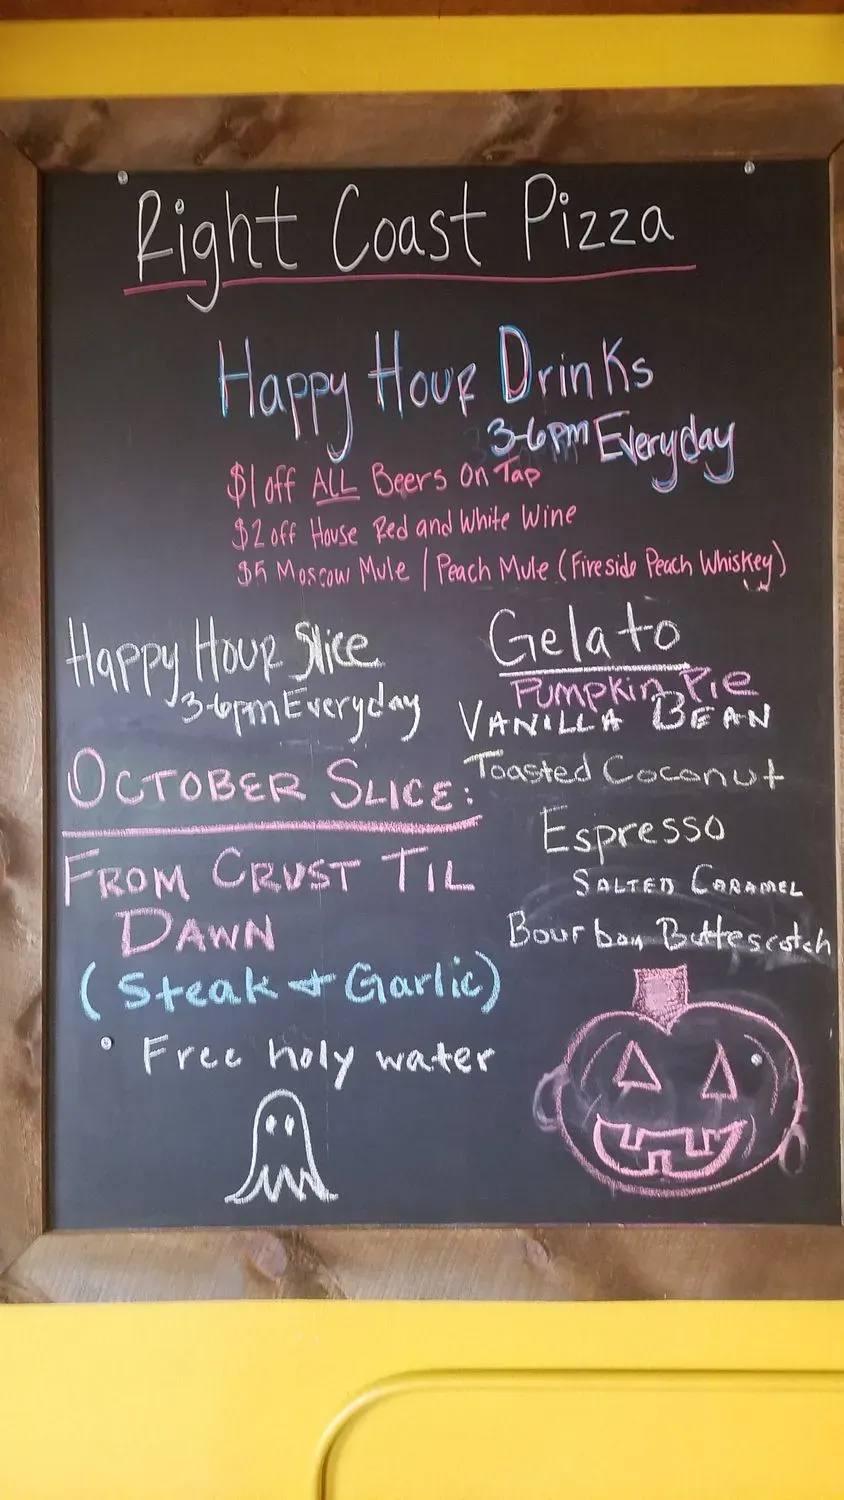 Right Coast Pizza
Happy Hour Drinks
3-6pm Everyday
$1 off ALL Beers On Tap
$2 off House Red and White Wine
$5 Moscow Mule / Peach Mule (Fireside Peach Whiskey)
Happy Hour Slice
3-6pm Everyday
OCTOBER SLICE:
FROM CRUST TIL
DAWN
(Steak + Garlic)
Free holy water
Gelato
PUMPKIN PIE
VANILLA BEAN
Toasted Coconut
Espresso
SALTED CARAMEL
Bourbon Butterscotch